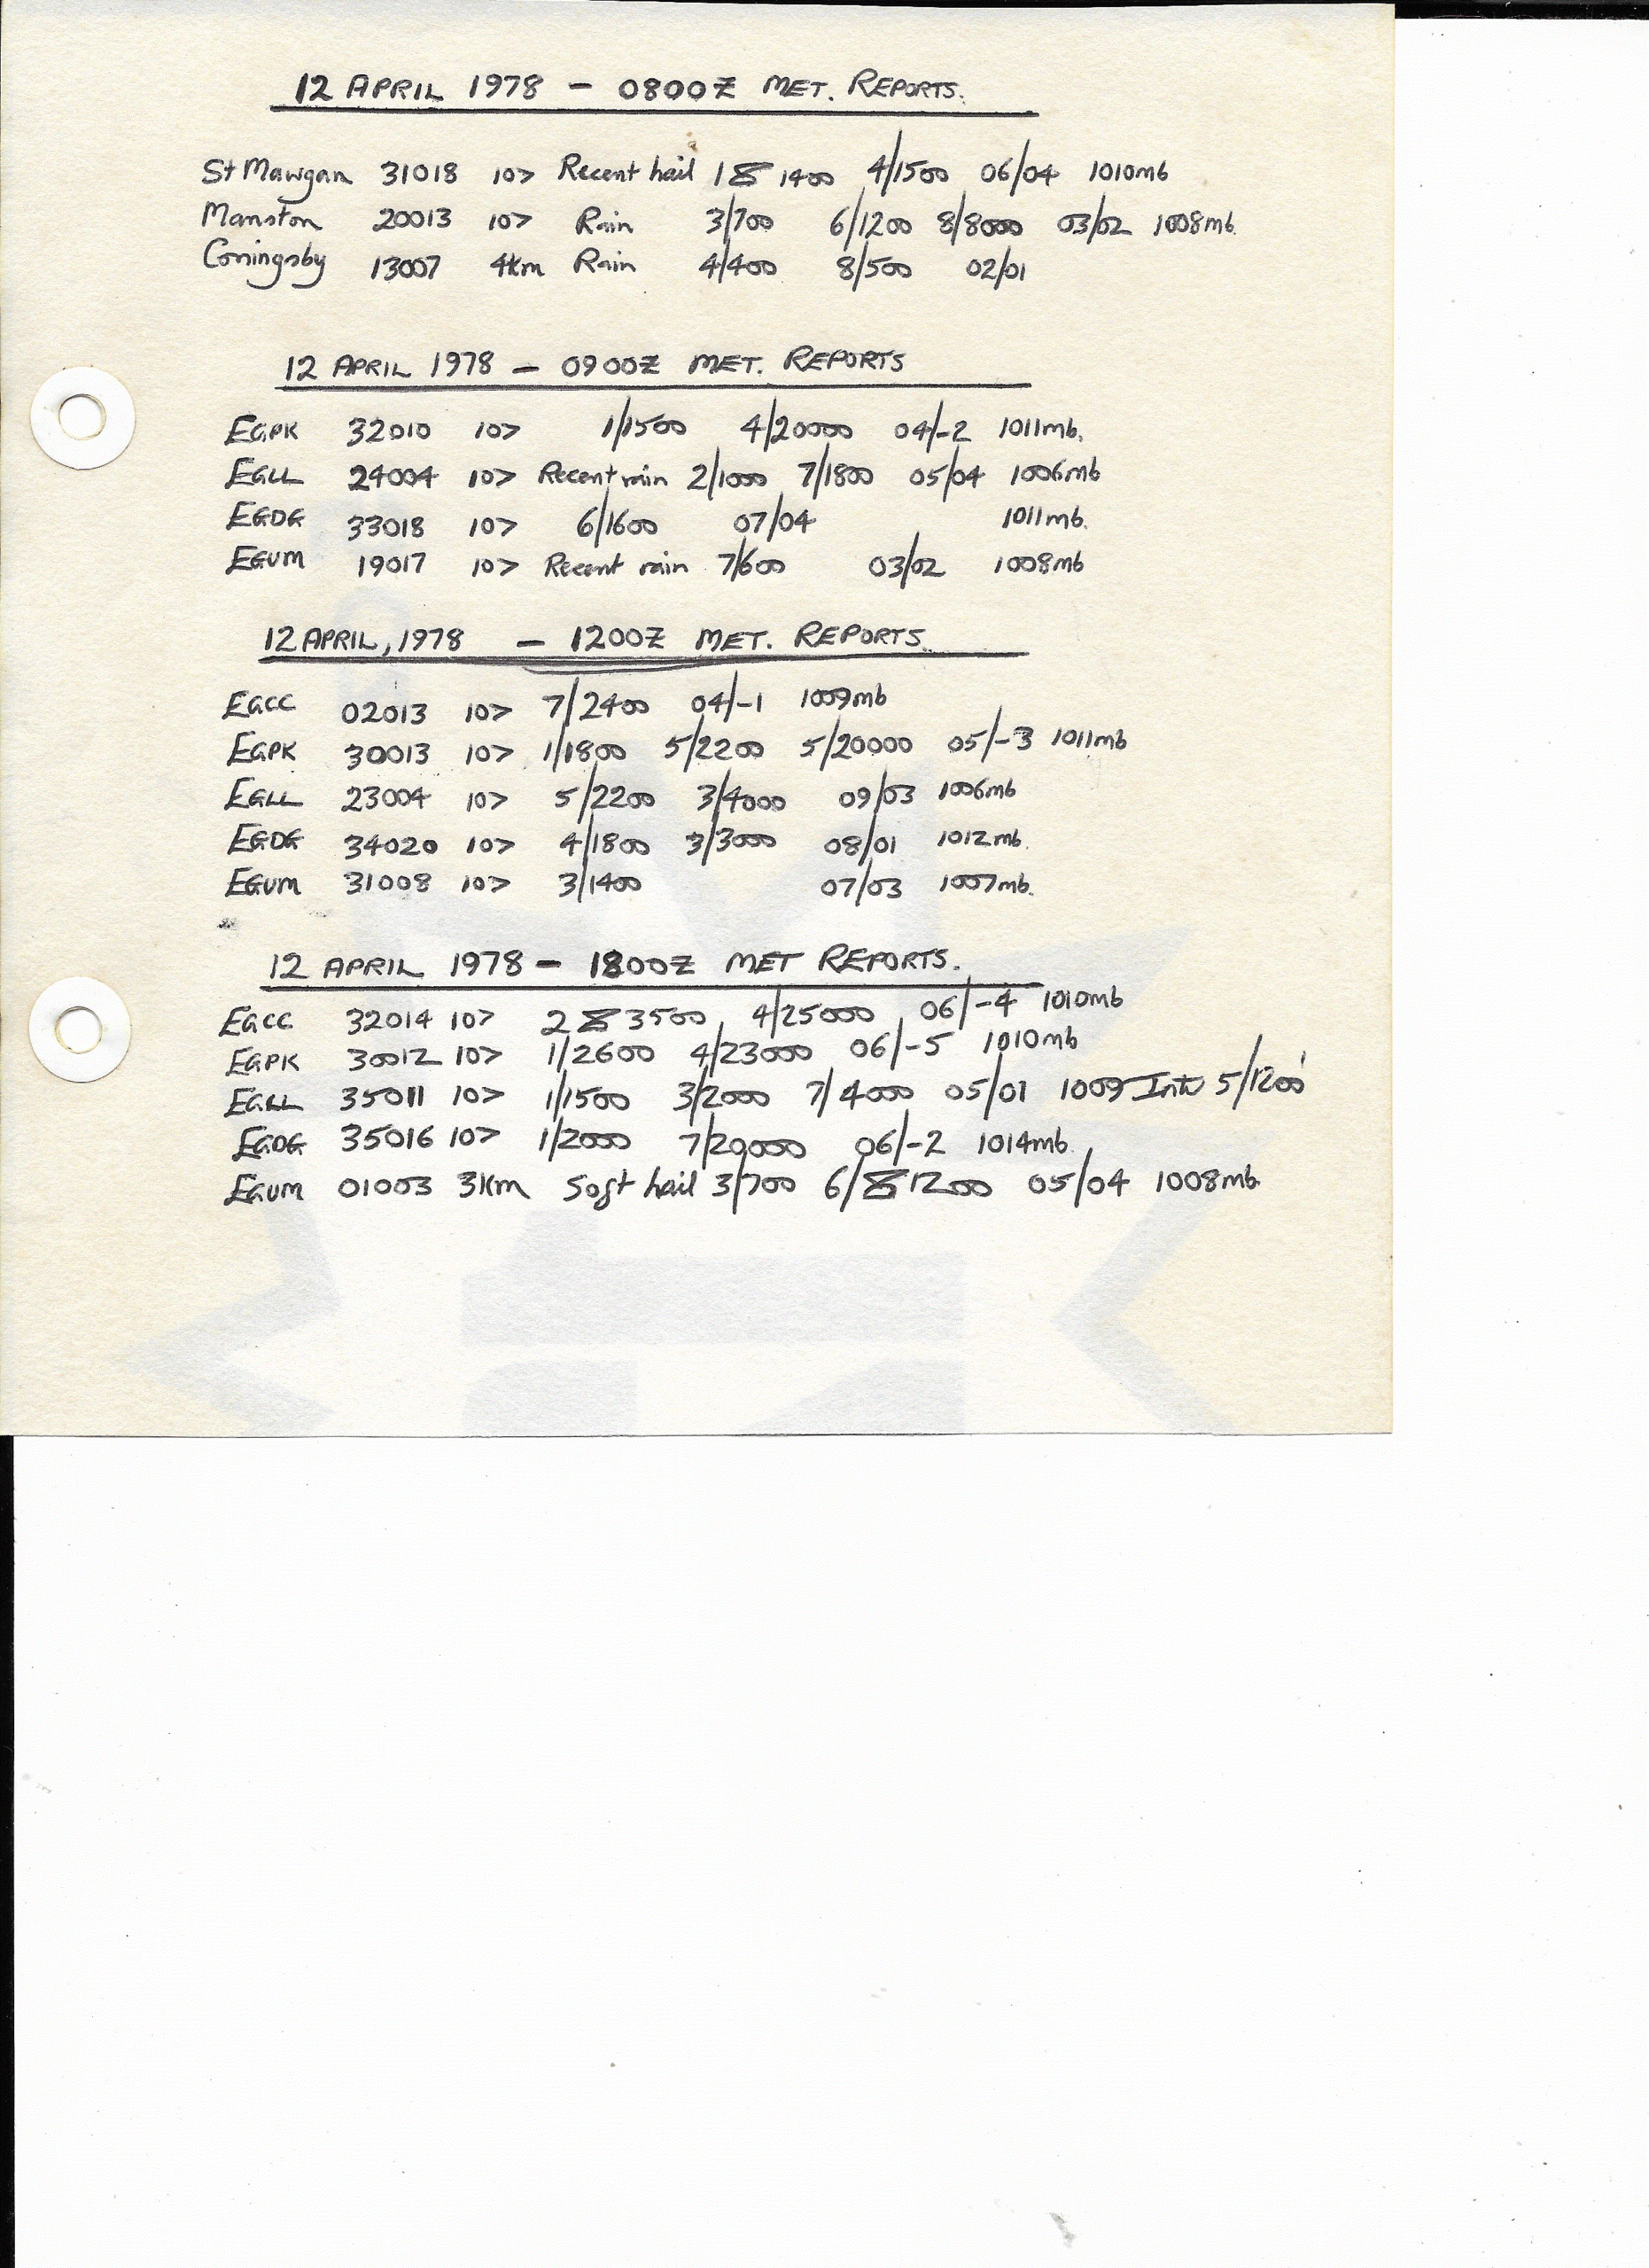 12 APRIL 1978 - 0800Z MET. REPORTS.
St Mawgan 31018 10> Recent hail 1 8 1400 4/1500 06/04 1010mb
Manston 20013 10> Rain 3/700 6/1200 8/8000 03/02 1008mb.
Coningsby 13007 4km Rain 4/400 8/500 02/01
12 APRIL 1978 - 0900Z MET. REPORTS
EGPK 32010 10> 1/1500 4/20000 04/-2 1011mb.
EGLL 24004 10> Recent rain 2/1000 7/1800 05/04 1006mb
EGDG 33018 10> 6/1600 07/04 1011mb.
EGUM 19017 10> Recent rain 7/600 03/02 1008mb
12 APRIL, 1978 - 1200Z MET. REPORTS.
EGCC 02013 10> 7/2400 04/-1 1009mb
EGPK 30013 10> 1/1800 5/2200 5/20000 05/-3 1011mb
EGLL 23004 10> 5/2200 3/4000 09/03 1006mb
EGDG 34020 10> 4/1800 3/3000 08/01 1012mb.
EGUM 31008 10> 3/1400 07/03 1007mb.
12 APRIL 1978 - 1800Z MET REPORTS.
EGCC 32014 10> 2 8 3500 4/25000 06/-4 1010mb
EGPK 30012 10> 1/2600 4/23000 06/-5 1010mb
EGLL 35011 10> 1/1500 3/2000 7/4000 05/01 1009 Inte 5/1200'
EGDG 35016 10> 1/2000 7/20000 06/-2 1014mb.
EGUM 01003 3km Soft hail 3/700 6/8 1200 05/04 1008mb